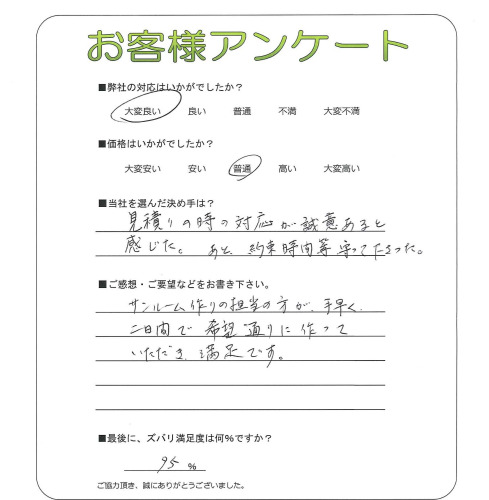 お客様アンケート
■弊社の対応はいかがでしたか?
大変良い 良い 普通 不満 大変不満
■価格はいかがでしたか?
大変安い 安い 普通 高い 大変高い
■当社を選んだ決め手は?
見積りの時の対応が誠意あると
感じた。あと、約束時間等守ってたさった。
■ご感想・ご要望などをお書き下さい。
サンルーム作りの担当の方が、手早く、
二日間で希望通りに作って
いただき、満足です。
■最後に、ズバリ満足度は何%ですか?
95 %
ご協力頂き、誠にありがとうございました。